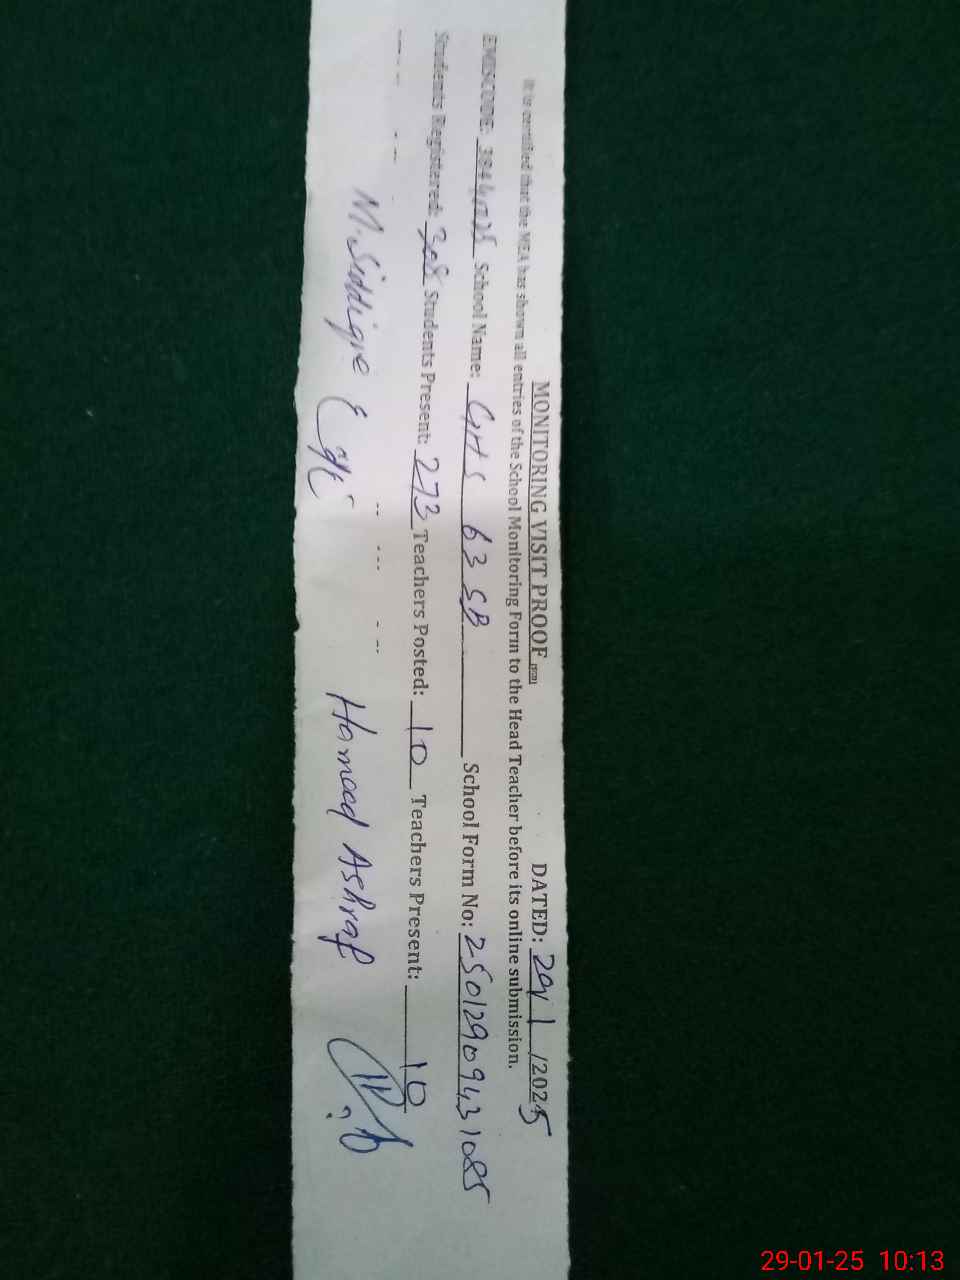 MONITORING VISIT PROOF DATED: 29/1/2025
It is certified that the MEA has shown all entries of the School Monitoring Form to the Head Teacher before its online submission.
EMISCODE: School Name: GHS 63 SB School Form No: 25012909431085
Students Registered: 308 Students Present: 273 Teachers Posted: 10 Teachers Present: 10
M. Siddique Hamood Ashraf
29-01-25 10:13